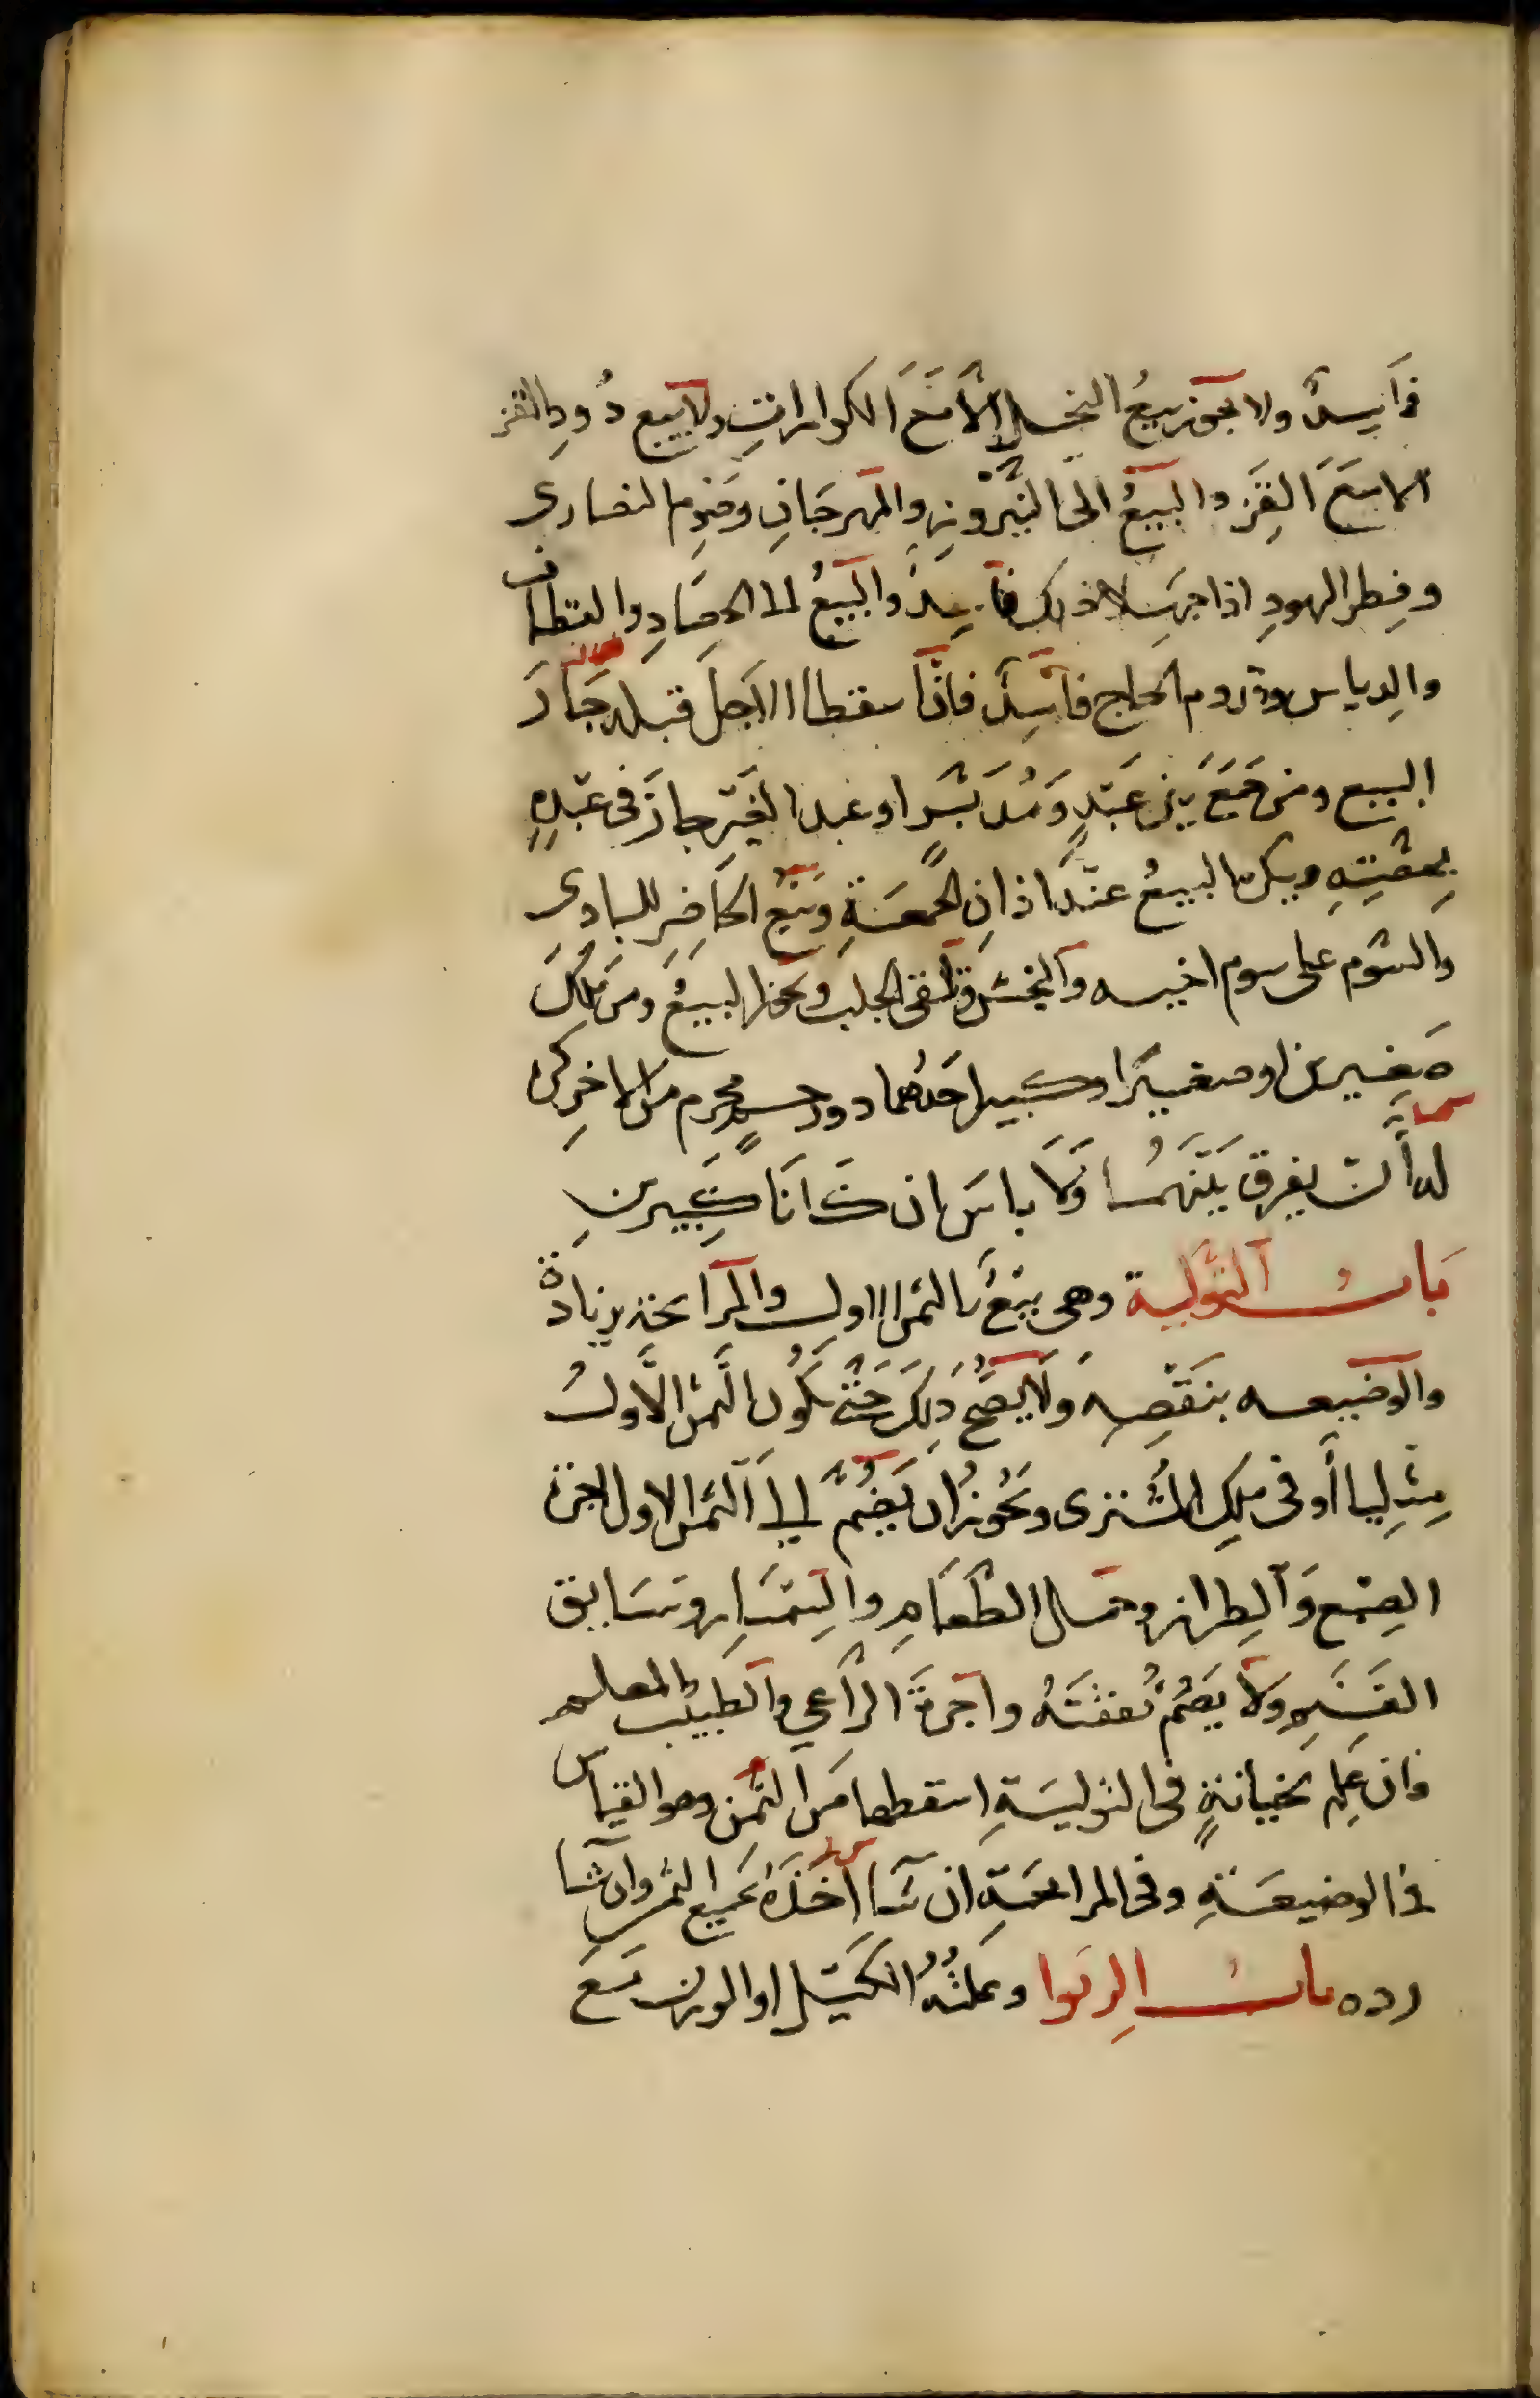 فاسدٌ ولا يجوز بيعُ النحل الا مَعَ الكوارات ولا بيع دُودِ القز
الا مَعَ القَز والبيعُ الى النَّيروزِ والمهرجَانِ وصَومِ النصارى
وفِطرِ اليهودِ اذا جهلا ذلك فاسِدٌ والبَيعُ الى الحصَادِ والقطاف
والدِياس وقدوم الحاج فاسِدٌ فاِنْ اسقطا الاَجلَ قبله جَازَ
البيع ومن جَمَعَ بين عَبْدٍ وَمُدَبَّرٍ او عبد الغَيرِ جازَ فى عَبْدِهِ
بِحصّتِهِ ويكره البيعُ عنْدَ اذانِ الجمعَةِ وبَيْعُ الحَاضِرِ للبادى
والسَّوم على سوم اخيه والنجْش وتلَقى الجلب ويجوز البيعُ ومن مَلَكَ
صَغِيرين او صغيرًا وكبيرا احَدُهُما ذو رحمٍ محرم من الاخر كره
له أنْ يفرق بَيْنَهُما وَلَا باسَ ان كَانَا كبِيرينِ
بَابُ التَّوْلية وهى بَيْعُ بالثمن الاول والمُرابحة بزيادة
والوَضيعه بنَقْصِهِ وَلَا يَصِحُّ ذَلِكَ حَتَّى يَكُونَ الثَّمنُ الاَّولُ
مِثلِيا أَو فى مِلكِ المشُتَرى وَيَجُوزُ ان يَضُمَّ اِلى الثمن الاول اجرة
الصِبْغ وَالطِراز وحَمل الطَّعَامِ والسِّمْسَارِ وسَايق
الغَنَمِ وَلا يَضُمُّ نَفقَتَهُ واجرةَ الرَّاعِي والطَبيبِ والمعلم
فان عَلِمَ بخيانةٍ فى التوليَةِ اسقطها مَن الثَّمَنِ وهو القياس
فى الوضيعَةِ وفى المرابحَةِ ان شَا اَخَذَهُ بجَميعِ الثمنِ وان شَا
رده بابُ الرِبَوا وعِلَّتُهُ الكَيْل او الوزن مَعَ